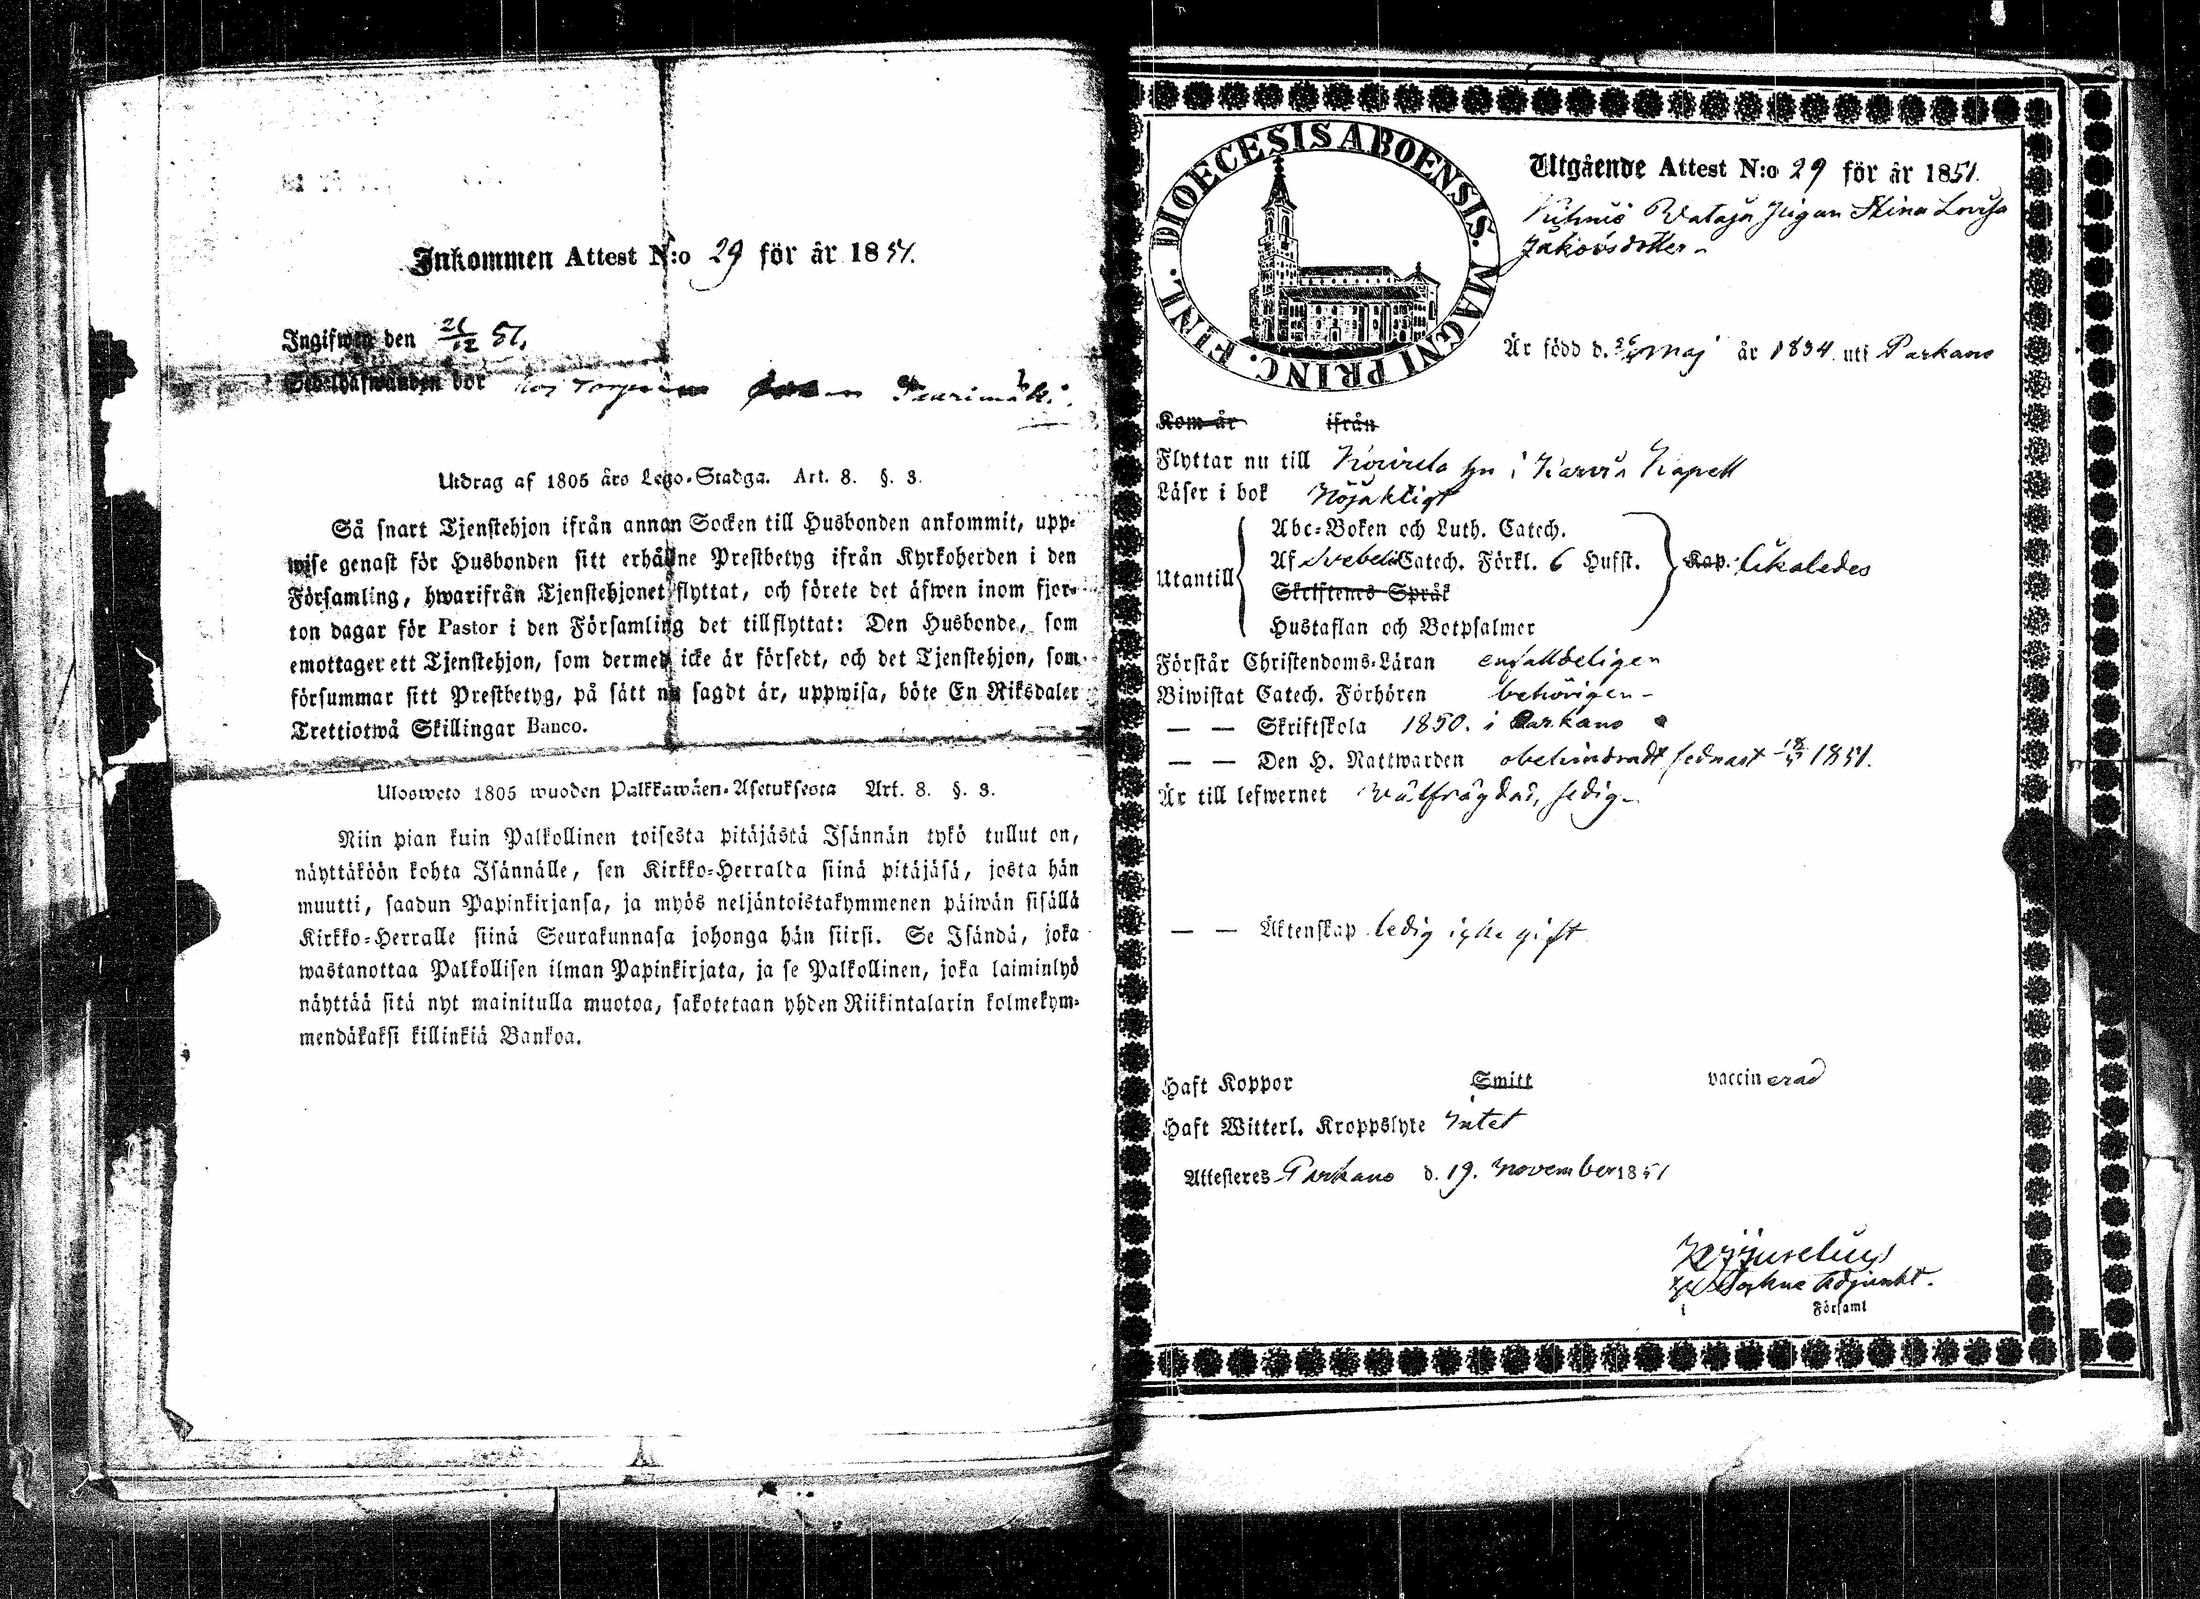 Inkommen Attest N:o 29 för år 1851.
Ingifwen den 21/12 51.
Sedelhafwanden bor hos
Utdrag af 1805 års Lego-Stadga. Art. 8. §. 3.
Så snart Tjenstehjon ifrån annan Socken till Husbonden ankommit, upp-
wise genast för Husbonden sitt erhållne Prestbetyg ifrån Kyrkoherden i den
Församling, hwarifrån Tjenstehjonet flyttat, och förete det äfwen inom fjor-
ton dagar för Pastor i den Församling det tillflyttat: Den Husbonde, som
emottager ett Tjenstehjon, som dermed icke är försedt, och det Tjenstehjon, som
försummar sitt Prestbetyg, på sätt nu sagdt är, uppwisa, böte En Riksdaler
Trettiotwå Skillingar Banco.
Ulosweto 1805 wuoden Palkkawäen-Asetuksesta Art. 8. §. 3.
Niin pian kuin Palkollinen toisesta pitäjästä Isännän tykö tullut on,
näyttäköön kohta Isännälle, sen Kirkko-Herralda siinä pitäjäsä, josta hän
muutti, saadun Papinkirjansa, ja myös neljäntoistakymmenen päiwän sisällä
Kirkko-Herralle siinä Seurakunnasa johonga hän siirsi. Se Isändä, joka
wastanottaa Palkollisen ilman Papinkirjata, ja se Palkollinen, joka laiminlyö
näyttää sitä nyt mainitulla muotoa, sakotetaan yhden Riikintalarin kolmekym-
mendäkaksi killinkiä Bankoa.
DIOECESIS ABOENSIS. MAGNI PRINC. FINL.
Utgående Attest N:o 29 för år 1851.
Kihniö Wataja Pigan Stina Lovisa
Jakobsdotter
Är född d. Maj år 1834 uti Parkano
Kom år ifrån
Flyttar nu till Kowela by i Karvia Kapell
Läser i bok Nöjaktligt
Utantill
Abc-Boken och Luth. Catech.
Af Svebelii Catech. Förkl. 6 Hufst.
Skriftenes Språk
Hustaflan och Botpsalmer
Kap. likaledes
Förstår Christendoms-Läran enfalldeligen
Biwistat Catech. Förhören behörigen
— — Skriftskola 1850. i Parkano
— — Den H. Nattwarden obehindradt sednast 1851.
Är till lefwernet Wälfrägdad, ledig
— — Äktenskap ledig icke gift
Haft Koppor Smitt vaccinerad
Haft Witterl. Kroppslyte Intet
Attesteres Parkano d. 19. November 1851
Adjunkt.
i Församl